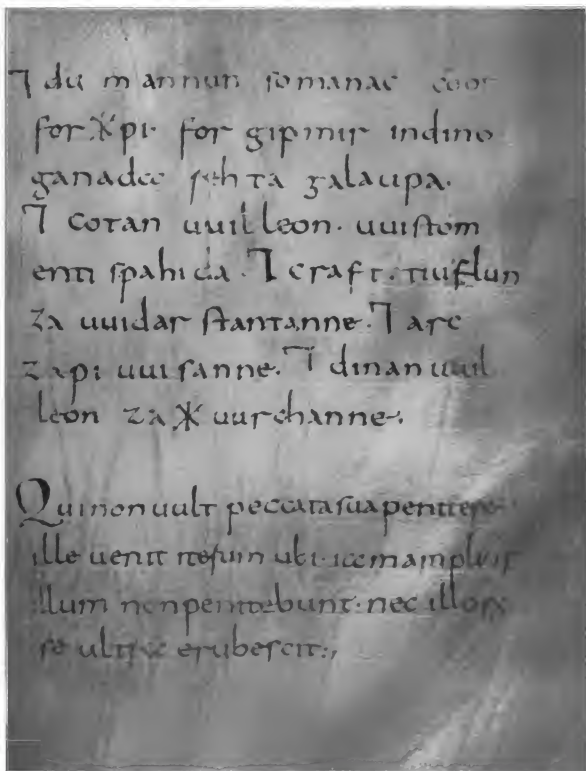 ⁊ du mannun so manac coot
for ᚼpi· for gip mir in dino
ganada rehta galaupa·
⁊ cotan uuilleon· uuistom
enti spahida· ⁊ craft· tiuflun
za uuidar stantanne· ⁊ arc
za pi uuisanne· ⁊ dinan uuil
leon za ᚼ uurchanne·

Qui non uult peccata sua penitere·
ille uenit iterum ubi iam amplius
illum non penitebunt· nec illorum
se ultra erubescit·